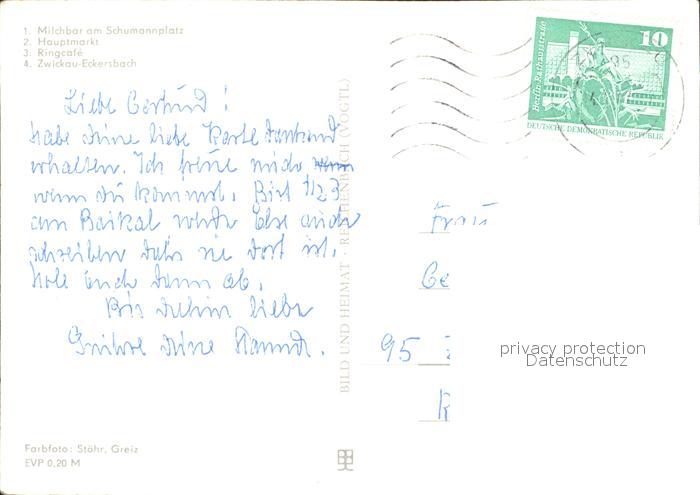 1. Milchbar am Schumannplatz
2. Hauptmarkt
3. Ringcafé
4. Zwickau-Eckersbach
10
Berlin-Rathausstraße
DEUTSCHE DEMOKRATISCHE REPUBLIK
Liebe Gertrud!
habe deine liebe Karte dankend
erhalten. Ich freue mich
wenn du kommst. Bist
am Baikal werde Else auch
schreiben daß sie dort ist.
hole euch dann ab.
Bis dahin liebe
Grüße deine
Frau
Ge
95
K
BILD UND HEIMAT · REICHENBACH (VOGTL)
privacy protection
Datenschutz
Farbfoto: Stöhr, Greiz
EVP 0,20 M